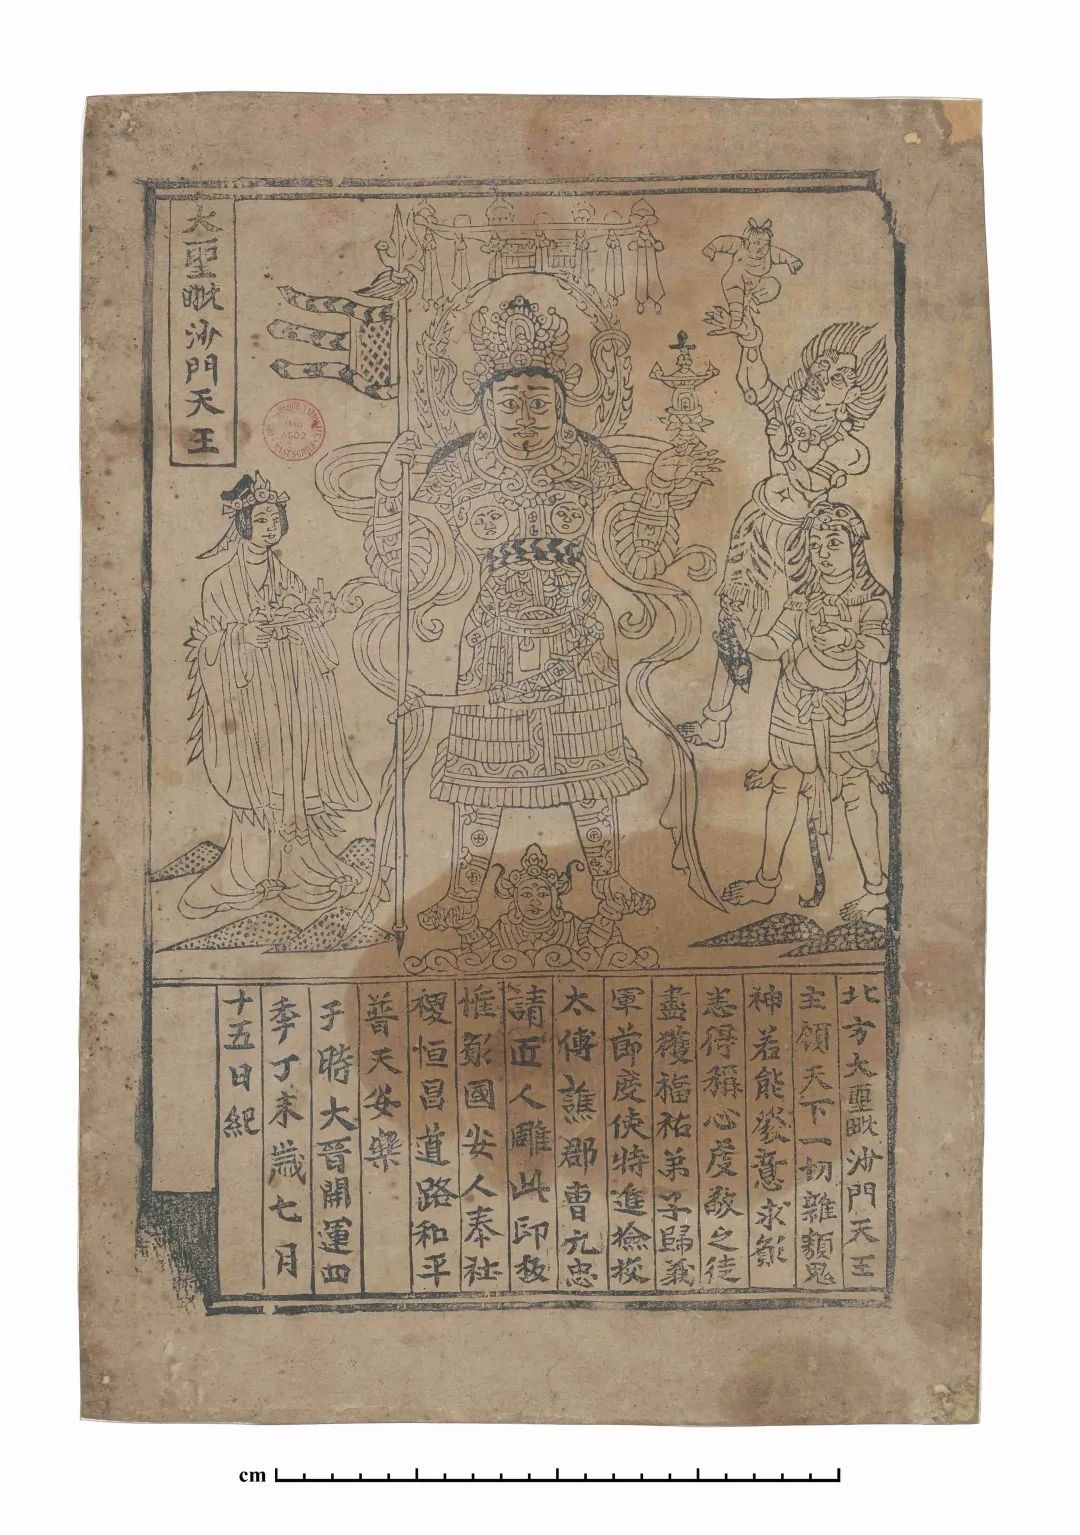 大聖毗沙門天王
北方大聖毗沙門天王
主領天下一切雜類鬼
神若能發意求願
悉得稱心虔敬之徒
盡獲福祐弟子歸義
軍節度使特進檢校
太傅譙郡曹元忠
請匠人雕此印板
惟願國安人泰社
稷恒昌道路和平
普天安樂
于時大晉開運四
季丁未歲七月
十五日紀
cm